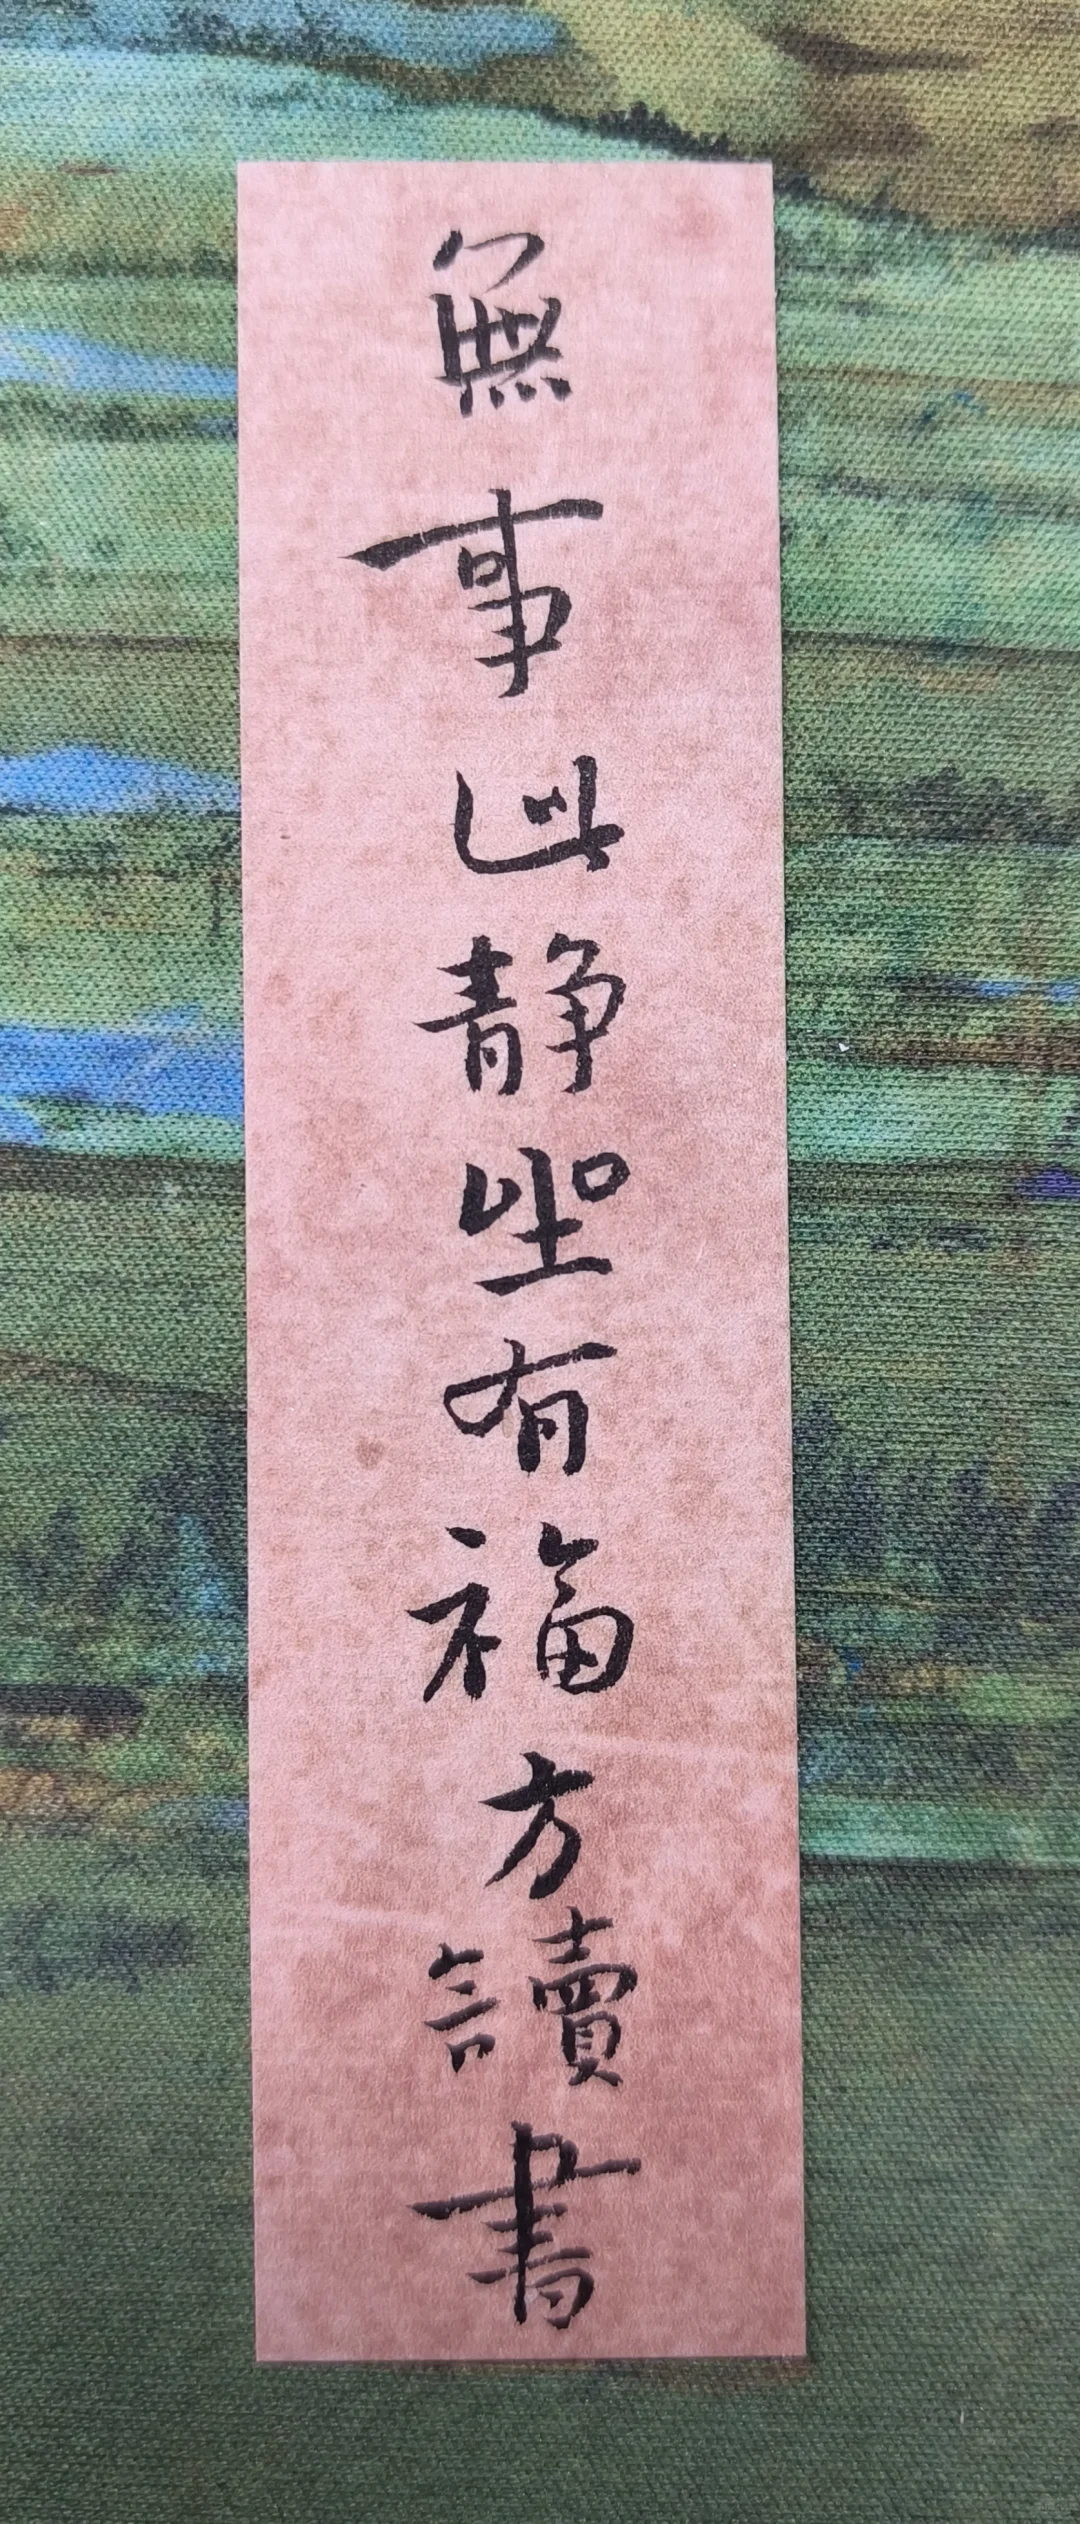 無事此静坐有福方讀書